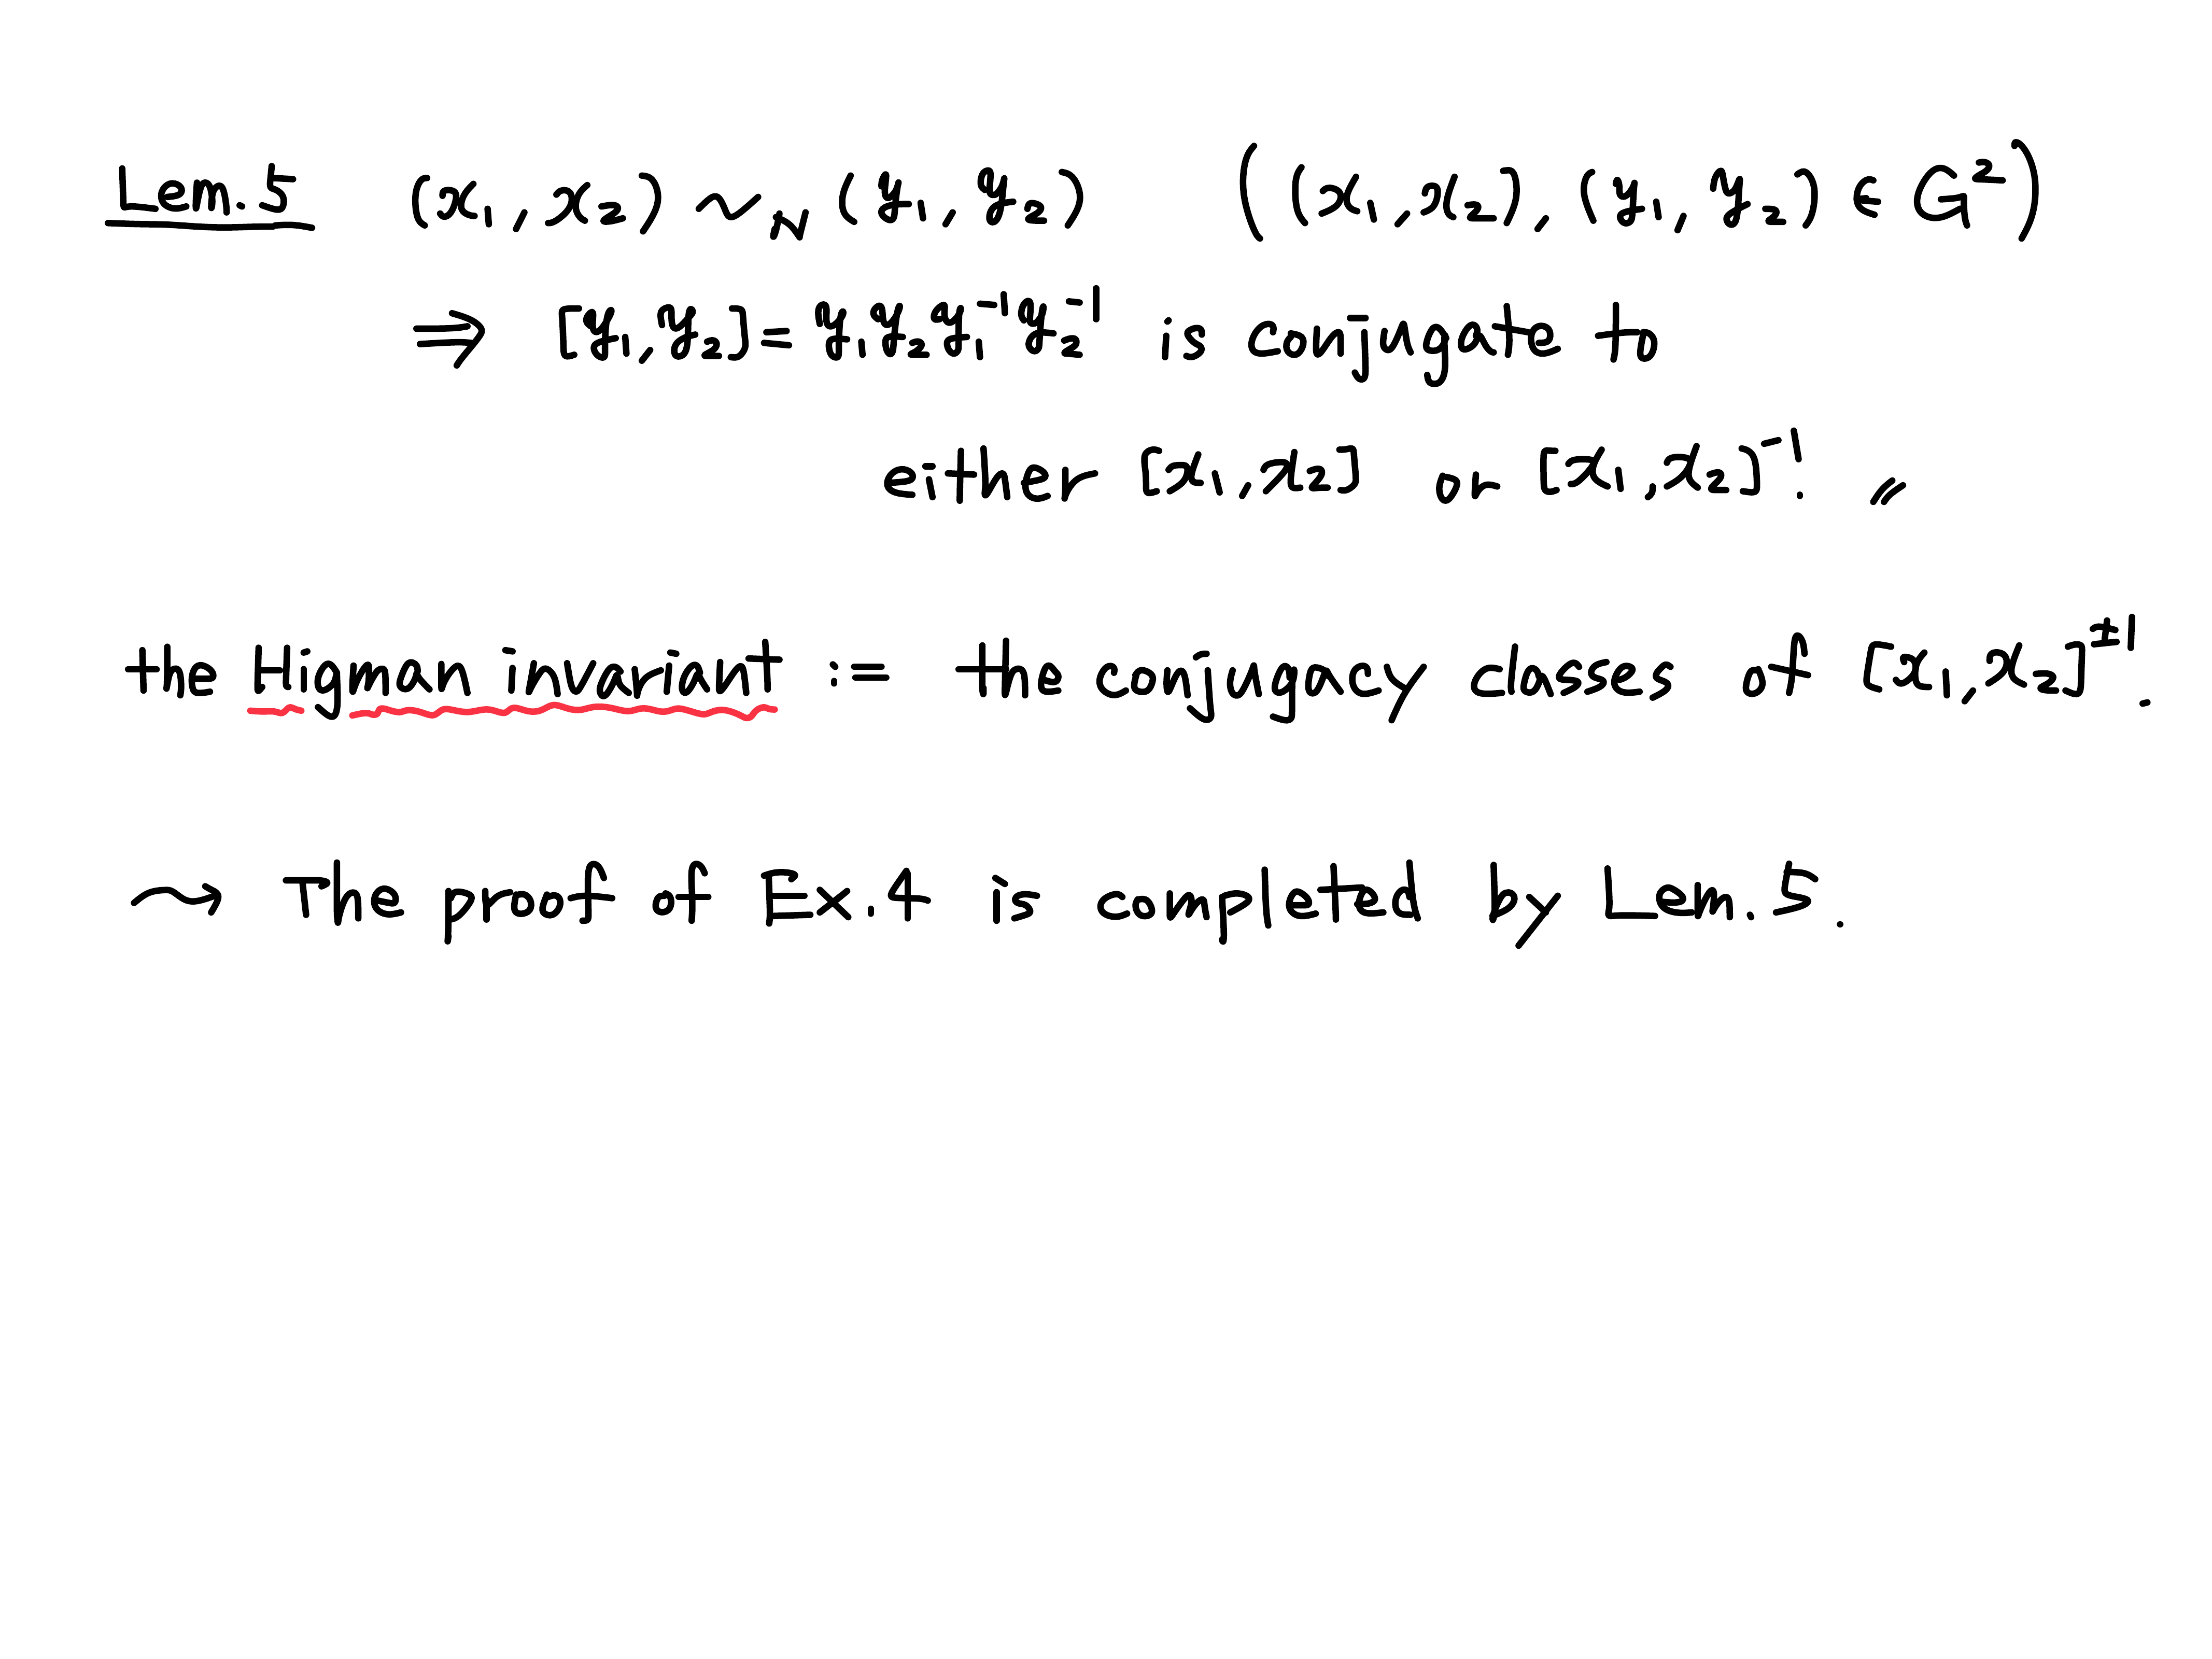 Lem. 5 (x₁, x₂) ~_N (y₁, y₂) ((x₁, x₂), (y₁, y₂) ∈ G²)
⇒ [y₁, y₂] = y₁y₂y₁⁻¹y₂⁻¹ is conjugate to
either [x₁, x₂] or [x₁, x₂]⁻¹. 〃
the Higman invariant := the conjugacy classes of [x₁, x₂]^±1.
⇝ The proof of Ex. 4 is completed by Lem. 5.